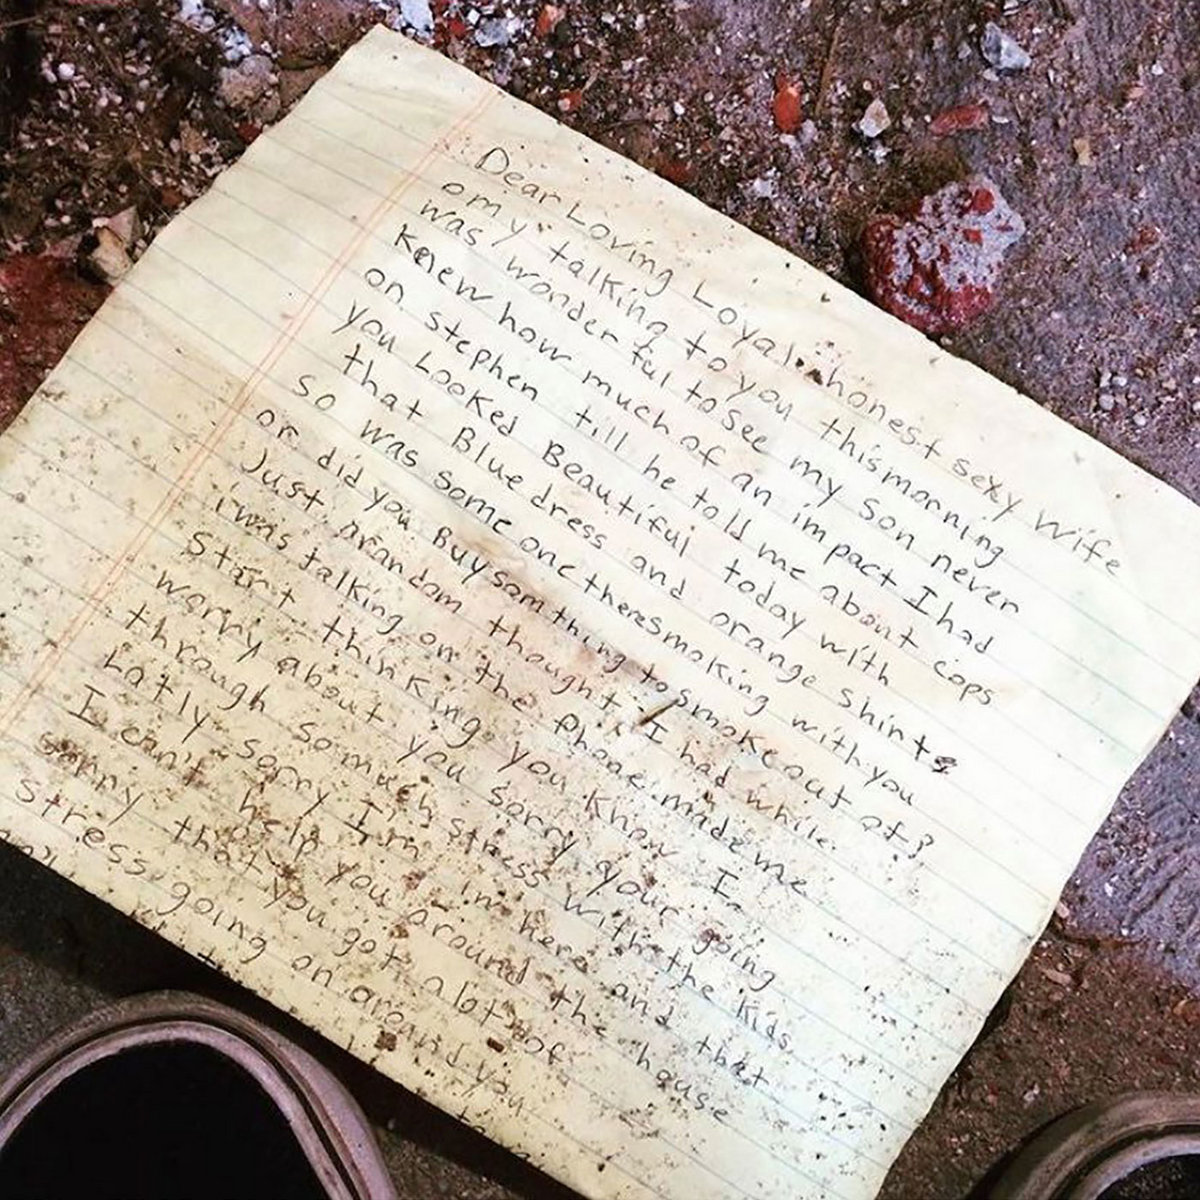 Dear Loving Loyal honest sexy Wife
omy talking to you this morning
was wonderful to see my son never
knew how much of an impact I had
on stephen till he told me about cops
you Looked Beautiful today with
that Blue dress and orange shirt
so was some one there smoking with you
or did you Buy som thing to smoke out of?
Just a random thought I had while
i was talking on the phone made me
Start thinking you know I
worry about you sorry your going
through so much stress with the kids
Latly sorry I'm in here and that
I can't help you around the house
sorry that you got a lot of
stress going on around you